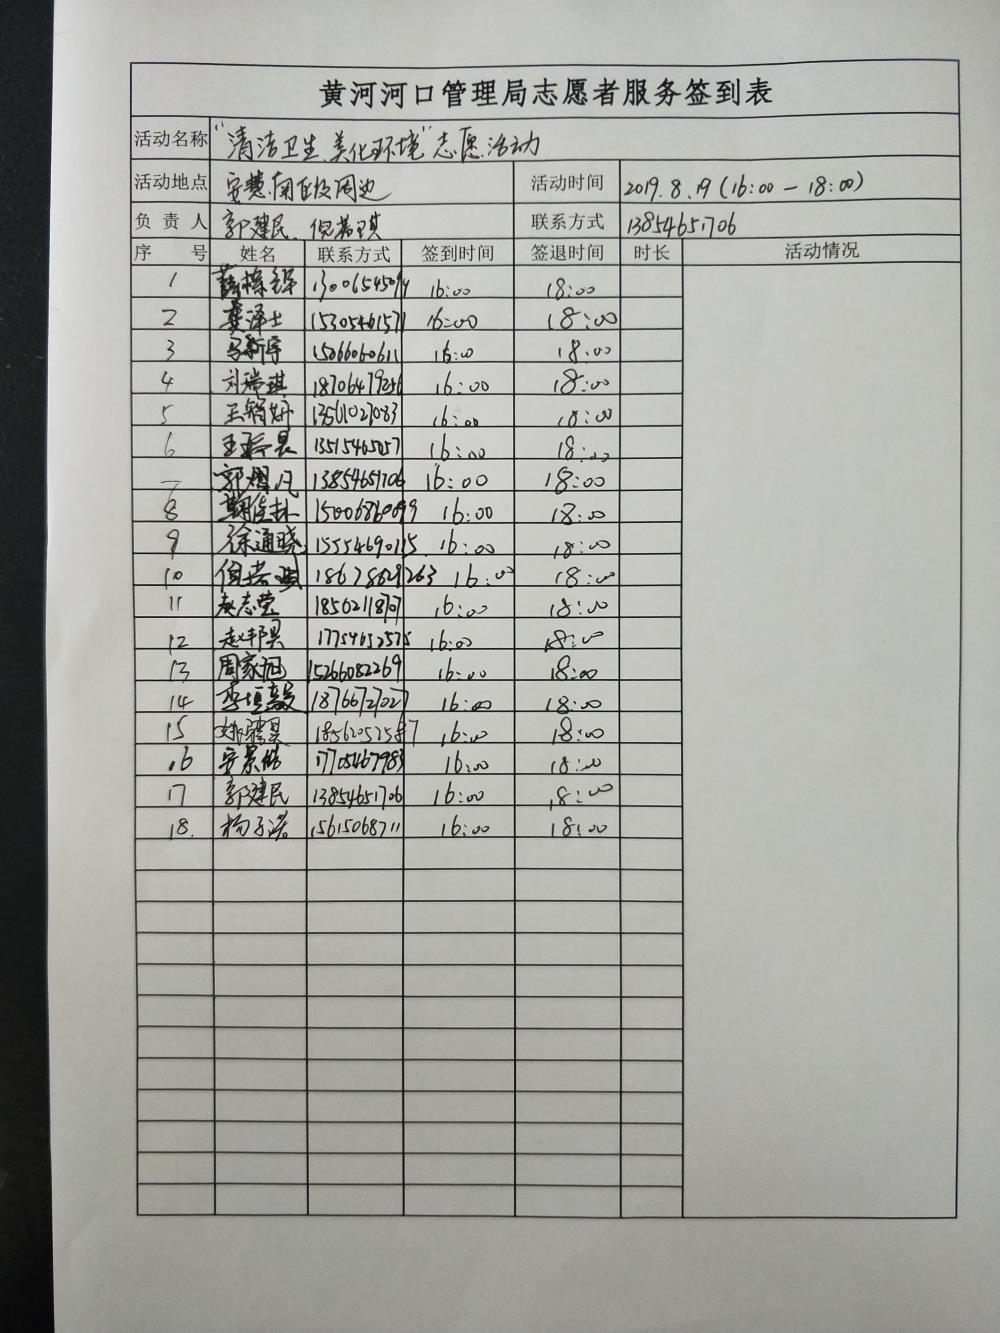 黄河河口管理局志愿者服务签到表
活动名称 "清洁卫生 美化环境"志愿活动
活动地点 安慧南区及周边 活动时间 2019.8.19(16:00-18:00)
负责人 郭建民、倪若琪 联系方式 13854651706
序号 姓名 联系方式 签到时间 签退时间 时长 活动情况
1 16:00 18:00
2 龚泽士 15305461571 16:00 18:00
3 马新宇 15066060611 16:00 18:00
4 刘瑞琪 18706479256 16:00 18:00
5 13561027083 16:00 18:00
6 13515465057 16:00 18:00
7 郭煜凡 13854651706 16:00 18:00
8 15006860099 16:00 18:00
9 徐通晓 15554690115 16:00 18:00
10 倪若琪 18678629263 16:00 18:00
11 赵志莹 18562118707 16:00 18:00
12 赵邦昊 17754652575 16:00 18:00
13 周家旭 15266082269 16:00 18:00
14 李垣毅 18766727027 16:00 18:00
15 18562052587 16:00 18:00
16 安景然 17705467983 16:00 18:00
17 郭建民 13854651706 16:00 18:00
18. 杨子诺 15615068711 16:00 18:00